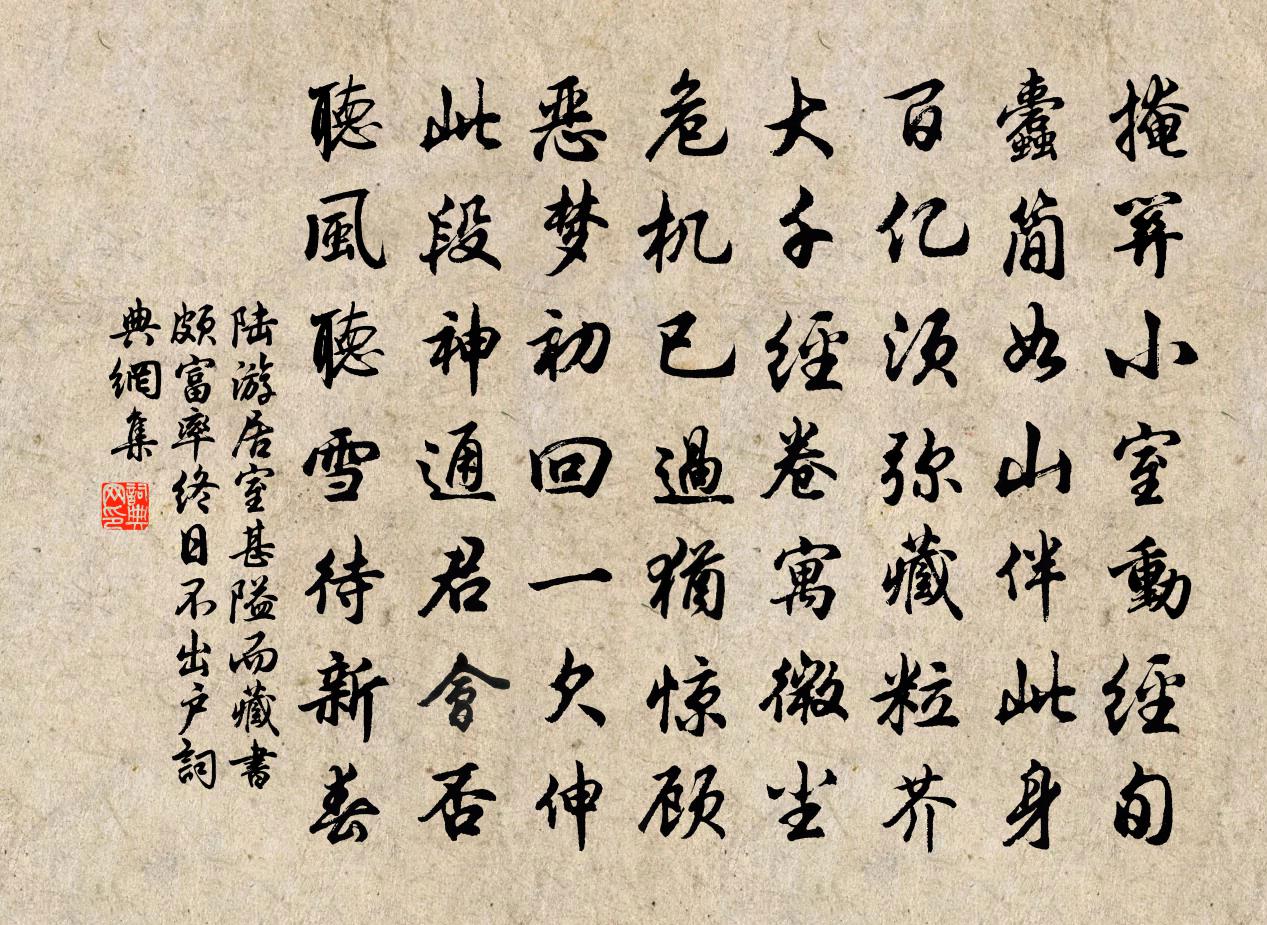 掩關小室動經旬
蠹简如山伴此身
百亿须弥藏粒芥
大千經卷寓微尘
危机已過猶惊顾
恶梦初回一欠伸
此段神通君會否
聽風聽雪待新春
陆游居室甚隘而藏書
頗富率終日不出户詞
典網集
詞典网印